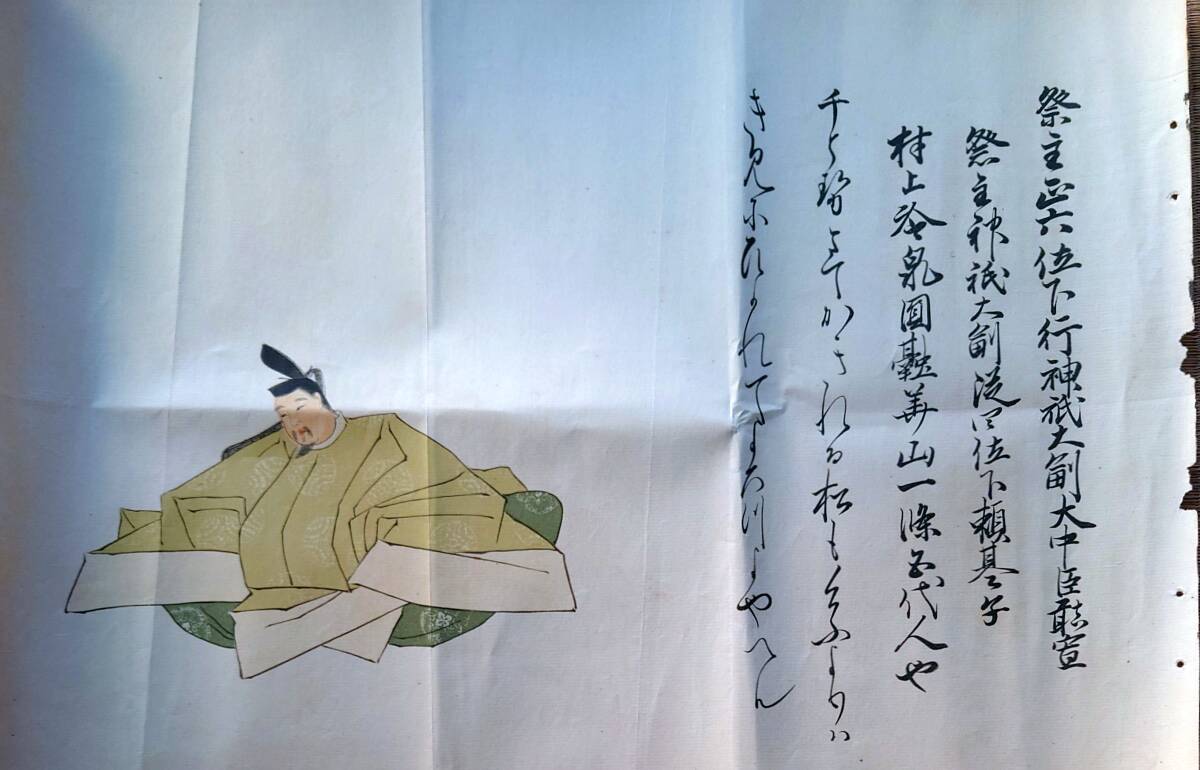 祭主正六位下行神祇大副大中臣能宣
祭主神祇大副従四位下頼基子
村上冷泉圓融華山一條五代人也
千と勢まてかきれる松もけふよりハ
きみにひかれてよろつよやへん